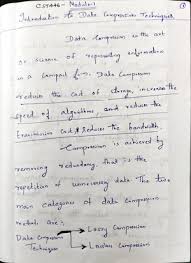 CST446 - Module 1
Introduction to Data Compression Techniques
Data Compression is the art
or science of representing information
in a compact form. Data Compression
reduces the cost of storage, increase the
speed of algorithms, and reduce the
transmission cost & Reduces the bandwidth.
Compression is achieved by
removing redundancy that is the
repetition of unnecessary data. The two
main categories of data compression
are:
Data Compression → Lossy Compression
Techniques → Lossless Compression